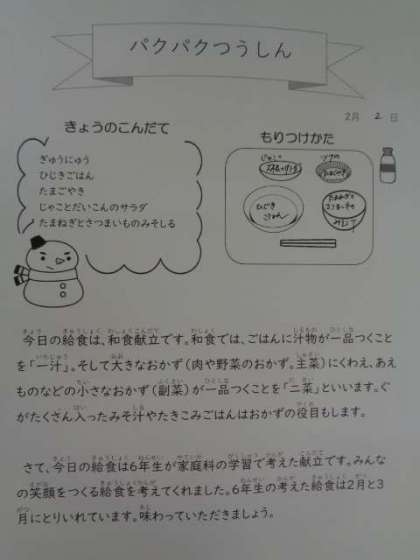 パクパクつうしん
2月 2 日
きょうのこんだて
ぎゅうにゅう
ひじきごはん
たまごやき
じゃことだいこんのサラダ
たまねぎとさつまいものみそしる
もりつけかた
ひじき
ごはん
今日の給食は、和食献立です。和食では、ごはんに汁物が一品つくこと
を「一汁」。そして大きなおかず(肉や野菜のおかず。主菜)にくわえ、あえ
ものなどの小さなおかず(副菜)が一品つくことを「二菜」といいます。ぐ
がたくさん入ったみそ汁やたきこみごはんはおかずの役目もします。
さて、今日の給食は6年生が家庭科の学習で考えた献立です。みんな
の笑顔をつくる給食を考えてくれました。6年生の考えた給食は2月と3
月にとりいれています。味わっていただきましょう。